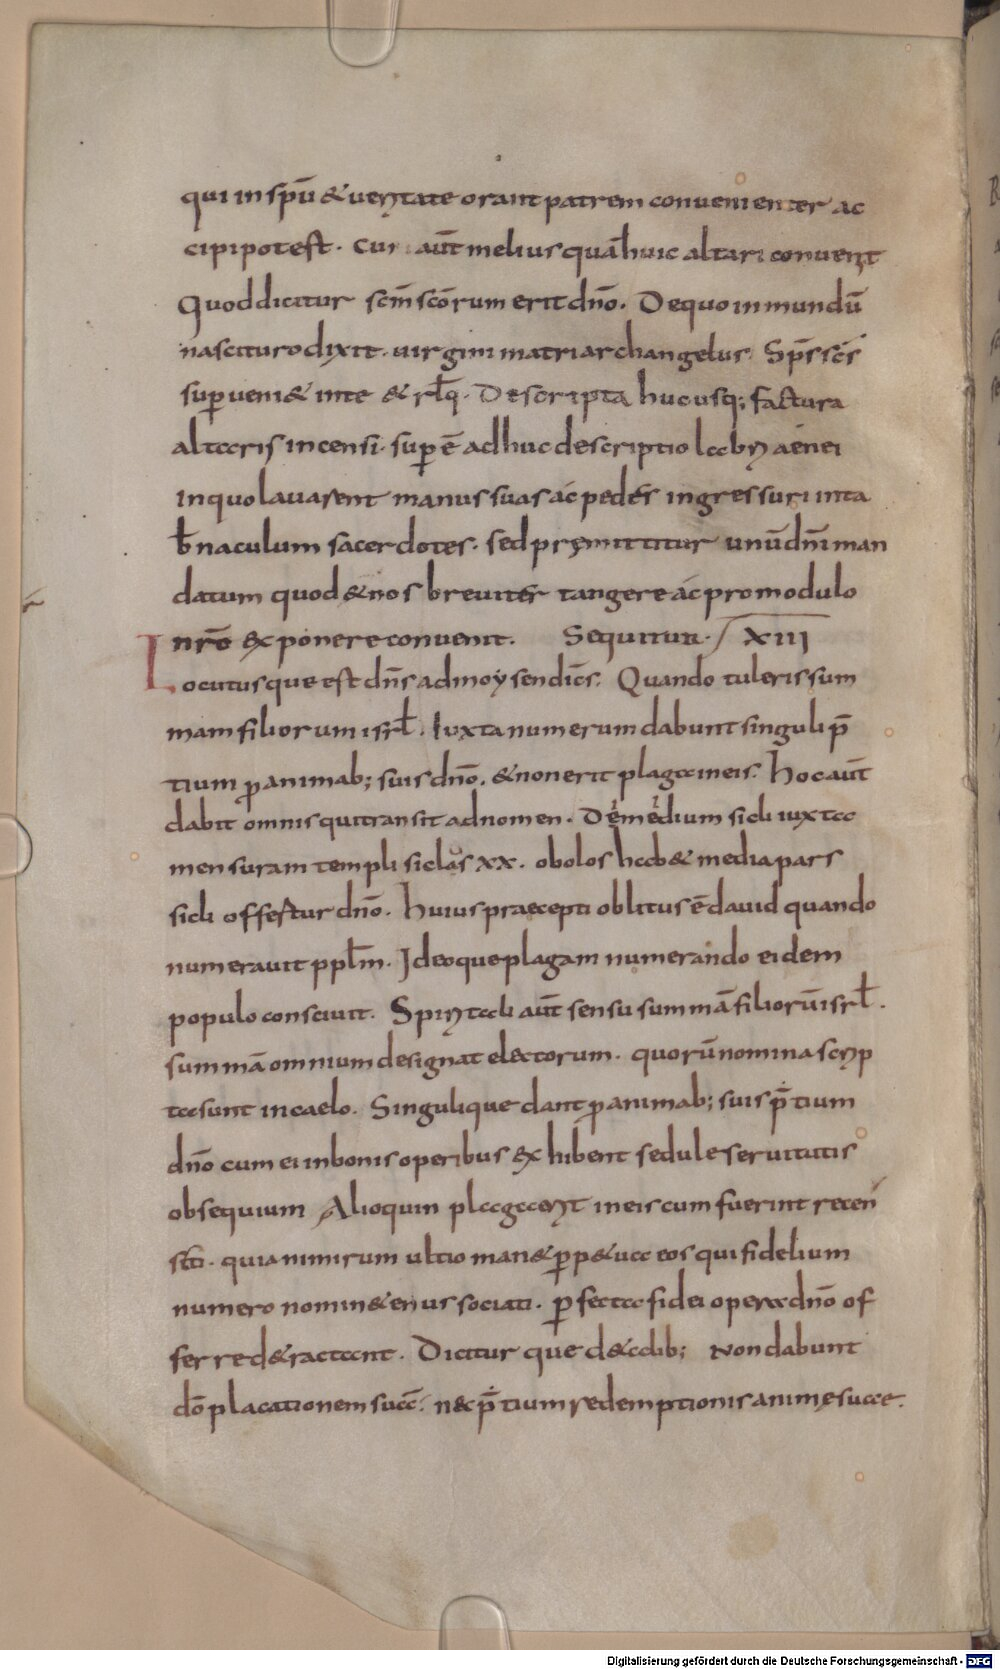 qui in sp̄u & ueritate orant patrem conuenienter ac
cipi potest. Cui aūt melius quā huic altari conuenit
Quod dicitur sc̄m sc̄orum erit dn̄o. De quo in mundū
nascituro dixit. uirgini matri archangelus. Sp̄s sc̄s
suꝑueni& in te & rl̄q. Descripta hucusq; factura
altaris incensi. suꝑ ē adhuc descriptio labri aenei
in quo lauarent manus suas ac pedes ingressuri in ta
b̄naculum sacerdotes. sed pręmittitur unū dn̄i man
datum quod & nos breuiter tangere ac pro modulo
nr̄o exponere conuenit. Sequitur. XIII
Locutusque est dn̄s ad moysen dicēs. Quando tuleris sum
mam filiorum isrl̄. Iuxta numerum dabunt singuli p̄
tium ꝓ animab; suis dn̄o. & non erit plaga in eis. Hoc aūt
dabit omnis qui transit ad nomen. Dememedium sicli iuxta
mensuram templi siclos xx. obolos hab& media pars
sicli offertur dn̄o. Huius praecepti oblitus ē dauid quando
numerauit ppl̄m. Ideoque plagam numerando eidem
populo consciuit. Spiritali aūt sensu summā filiorū isrl̄.
summā omnium designat electorum. quorū nomina scrip
ta sunt in caelo. Singulique dant ꝓ animab; suis p̄tium
dn̄o cum ei in bonis operibus exhibent sedule seruitutis
obsequium Alioquin plaga erit in eis cum fuerint recen
sti. quia nimirum ultio man& ꝑp&ua eos qui fidelium
numero nomine tenus sociati. ꝑfecta fidei opera dn̄o of
ferre detractant. Dicitur que de talib; Non dabunt
dō placationem suā. nec p̄tium redemptionis animę suae.
Digitalisierung gefördert durch die Deutsche Forschungsgemeinschaft - DFG